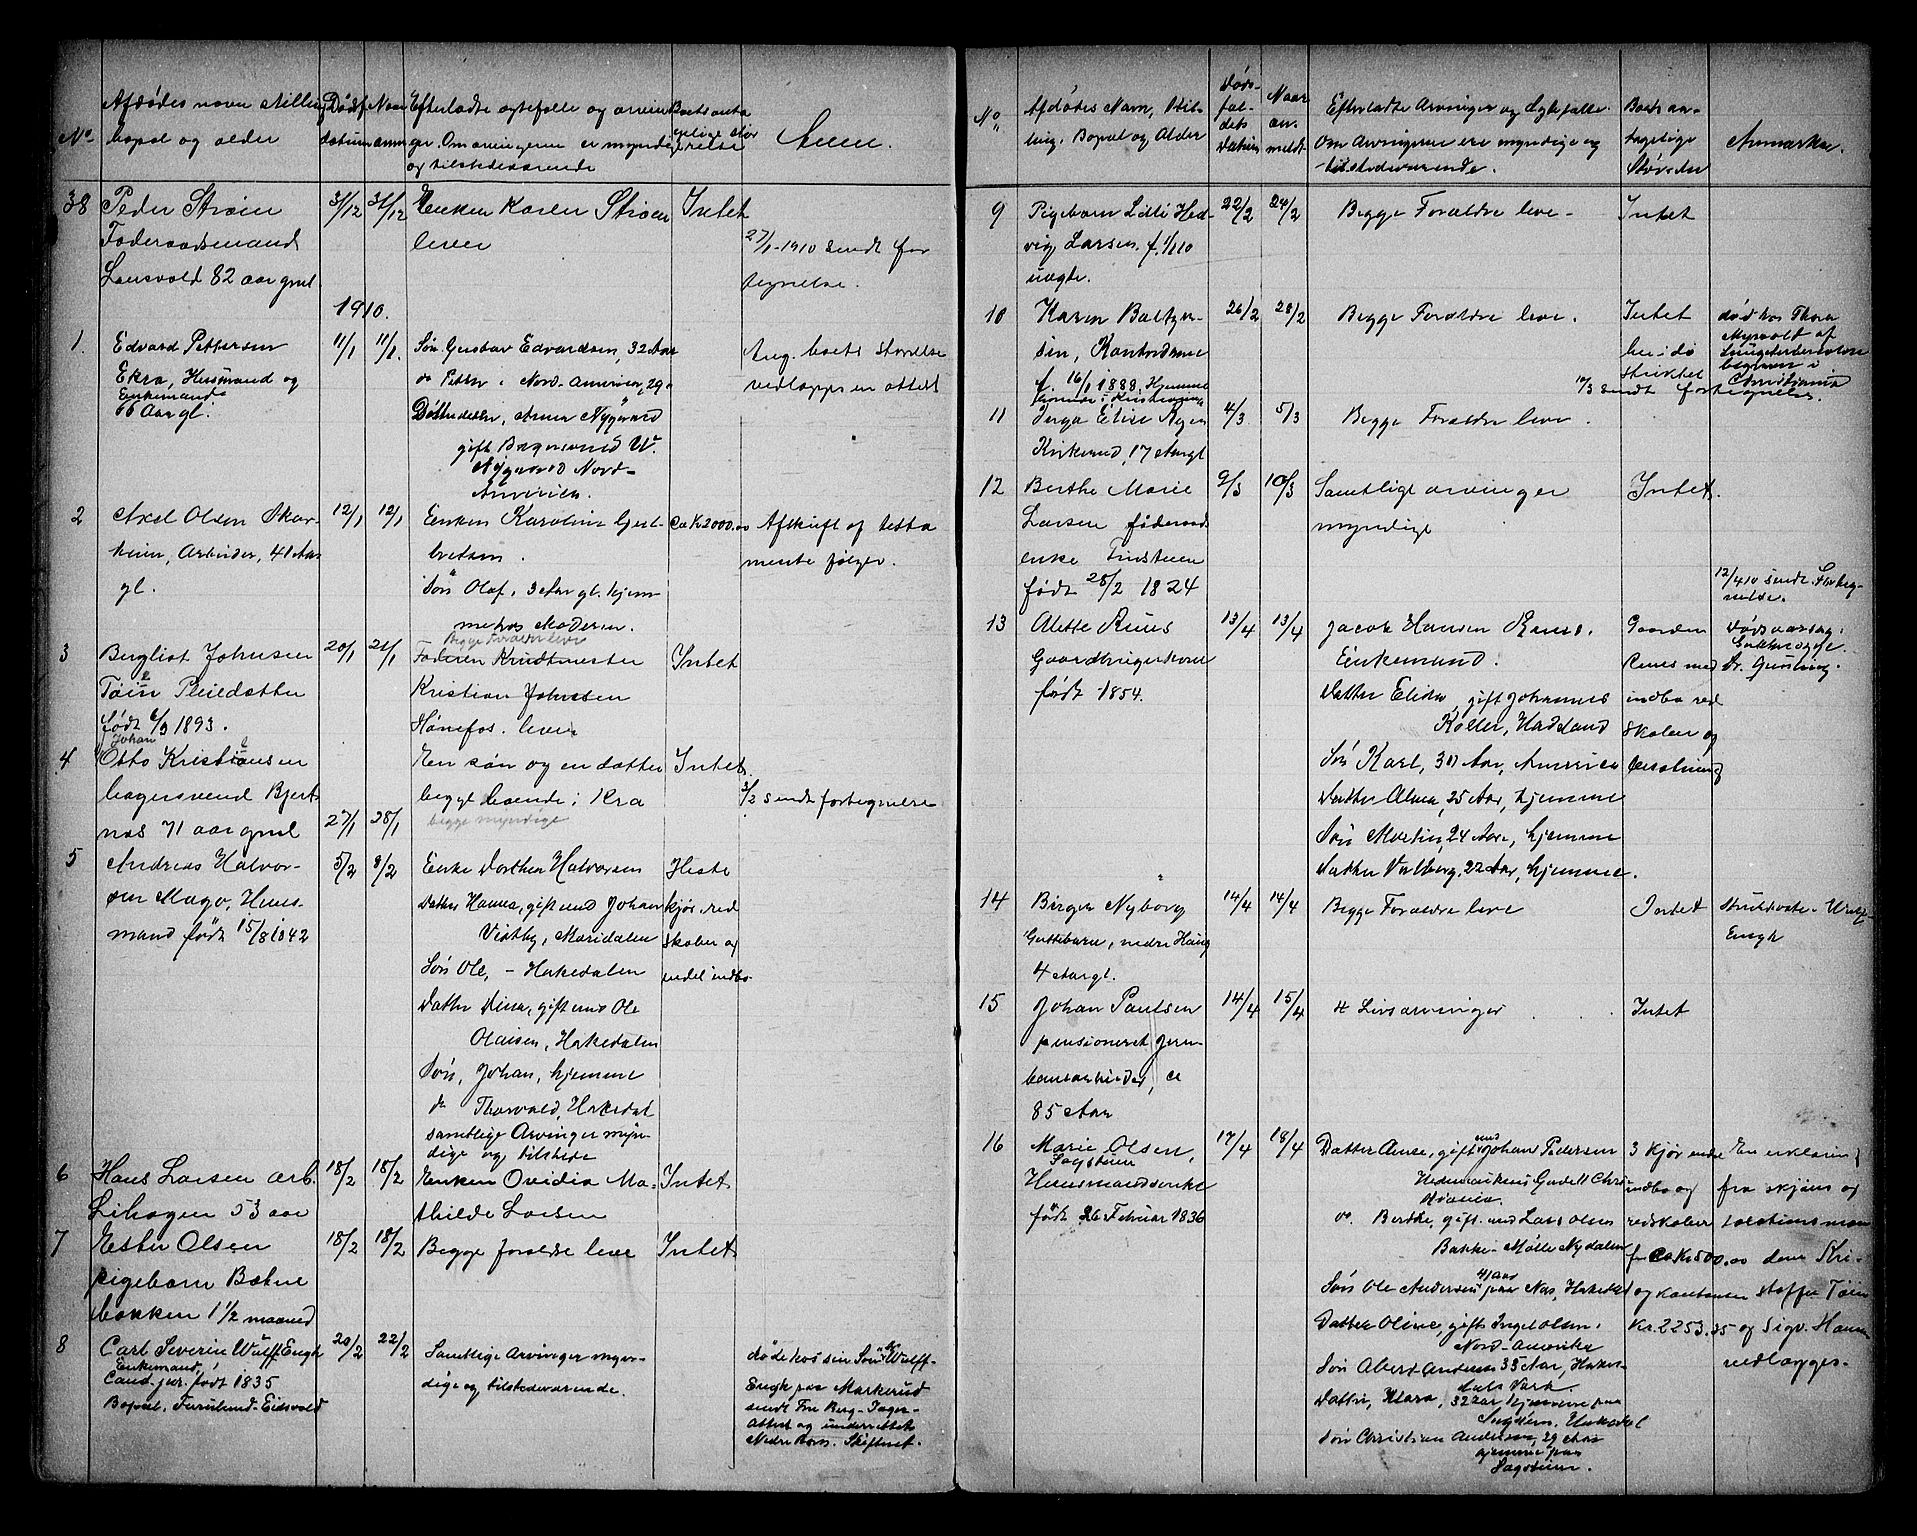 No.
Afdødes navn stilling
bopæl og alder
Dødsf
datum
Naar
anm
Efterladte ægtefælle og arvin
ger. Om arvingerne er myndige
og tilstedeværende
Boets anta
gelige stør
relse
Anm.
38 Peder Strøm 31/12 31/12 Enken Karen Strøm Intet
Føderaadsmand lever 27/1-1910 sendt for
82 aar gml. tegnelse.
1910.
1. Edvard Pettersen 11/1 11/1. Søn Gustav Edvardsen, 32 Aar Ang. boets størrelse
Ekra, Husmand og do Petter i Nord-Amerika, 29 vedlægges en attest
Enkemand Anna Nygaard
66 Aar gl. gift
Nygaard Nord-
Amerika.
2 Axel Olsen Skar- 12/1 12/1 Enken Karoline Gul- Ca Kr 2000.00 Afskrift af testa
heim, Arbeider, 41 Aar bretsen. mente følger.
gl. Søn Olaf, 3 Aar gl. hjem-
me hos Moderen.
Begge Forældre lever
3 Bergliot Johnsen 20/1 21/1 Faderen Krudtmester Intet
Tøien Pleiedatter Kristian Johnsen
født 6/9 1893. Hønefos. lever
Johan
4 Otto Kristiansen En søn og en datter Intet.
bagersvend Bjert- begge boende i Kra 3/2 sendt fortegnelse
næs 71 aar gml 27/1 28/1 begge myndige
5 Andreas Halvor- 5/2 8/2 Enke Dorthea Halvorsen Heste
sen Mago, Hus- Datter Hanna, gift med Johan kjørered
mand født 15/8 1842 Maridalen skaber og
Søn Ole, - Hakedalen endel indbo
Datter Dina, gift med Ole
Olaisen, Hakedalen
Søn, Johan, hjemme
do Thorvald, Hakedal
samtlige Arvinger myn-
dige og tilstede
6 Hans Larsen arb. 18/2 18/2 Enken Ovidia Ma- Intet
Lihagen 53 aar thilde Larsen
7 Ester Olsen 18/2 18/2 Begge forældre leve Intet
pigebarn Bækne
bakken 1 1/2 maaned
8 Carl Severin Wulff Engh 20/2 22/2 Samtlige Arvinger myn- døde hos sin Søn Wulff-
Enkemand dige og tilstedeværende. Engh paa Markerud
Cand. jur. født 1835 sendt
Bopæl, Furulund-Eidsvold attest og underrettet
Nedre Rom. Skifteret.
No.
Afdødes Navn, Stil-
ling, Bopæl og Alder
Døds-
fal-
dets
Datum
Naar
an-
meldt
Efterladte Arvinger og Ægtefælle.
Om Arvingerne ere myndige og
tilstedeværende.
Boets an-
tagelige
Størrelse
Anmærkn.
9 Pigebarn Lilli Hed- 22/2 24/2 Begge Forældre leve - Intet
vig Larsen, f. 1/1 10
uægte.
10 Karen Baltzer- 26/2 28/2 Begge Forældre leve. Intet død hos Thora
sen, Kontordame her i di Myrvold af
f. 16/1 1888. Hjemme striktet
begravet i
Christiania
10/3 sendt fortegnelse.
11 Inga Elise 4/3 5/3 Begge Forældre leve.
Kirkerud, 17 Aar gl
12 Berthe Marie 9/3 10/3 Samtlige arvinger Intet.
Larsen føderaads myndige
enke Tinsteen
født 28/2 1824 12/4 10 sendt Forteg-
nelse.
13 Alette Ruus 13/4 13/4 Jacob Hansen Ruus. Gaarden Dødsaarsag:
Gaardbrugerkone Enkemand. Ruus med
født 1854. Datter Elida, gift Johannes indbo red
Koller, Hadeland skaber og
Søn Karl, 30 Aar, Amerika besætning
Datter Alma, 25 Aar, hjemme
Søn Martin, 24 Aar, hjemme
Datter Valborg, 22 Aar, hjemme.
14 Birger Nyborg 14/4 14/4 Begge Forældre leve Intet
Guttebarn, nedre Haug Engh
4 Aar gl.
15 Johan Paulsen 14/4 15/4 Livsarvinger Intet
pensioneret jern-
banearbeider, ca
85 Aar
16 Marie Olsen, 17/4 18/4 Datter Anne, gift med Johan Pedersen 3 kjør endel En erklæring
Sagstuen Christiania indbo og fra skjøns og
Husmandsenke do. Berthe, gift med Lars Olsen redskaber taxationsmæn
født 26 Februar 1836 Bakke - Mølle Nydalen for ca Kr 500.00 dem Kri-
Søn Ole Andersen 41 Aar paa Nes, Hakedal og kontanter stoffer Tøien
Datter Oline, gift Ingel Olsen, Kr. 2253.35 og Sigv. Hansen
Nord-Amerika vedlægges.
Søn Albert Andersen 35 Aar, Hake-
dals Værk.
Datter, Klara, 32 Aar hjemme paa
Sagstuen, Hakedal
Søn Christian Andersen, 29 Aar
hjemme paa
Sagstuen.